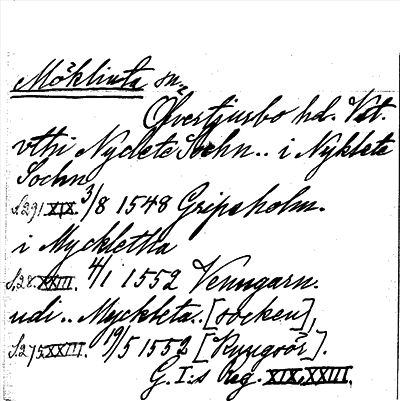 Möklinta sn.
Övertjurbo hd. Vst.
vthi Nyclete Sochn.. i Nyklete
Sochn
S.291.XIX. 3/8 1548 Gripsholm.
i Myckletha
S.28.XXIII. 4/1 1552 Venngarn.
udi.. Myckleta..[socken],
S.275.XXIII. 19/5 1552 [Ryngsör].
G. I:s reg. XIX, XXIII.